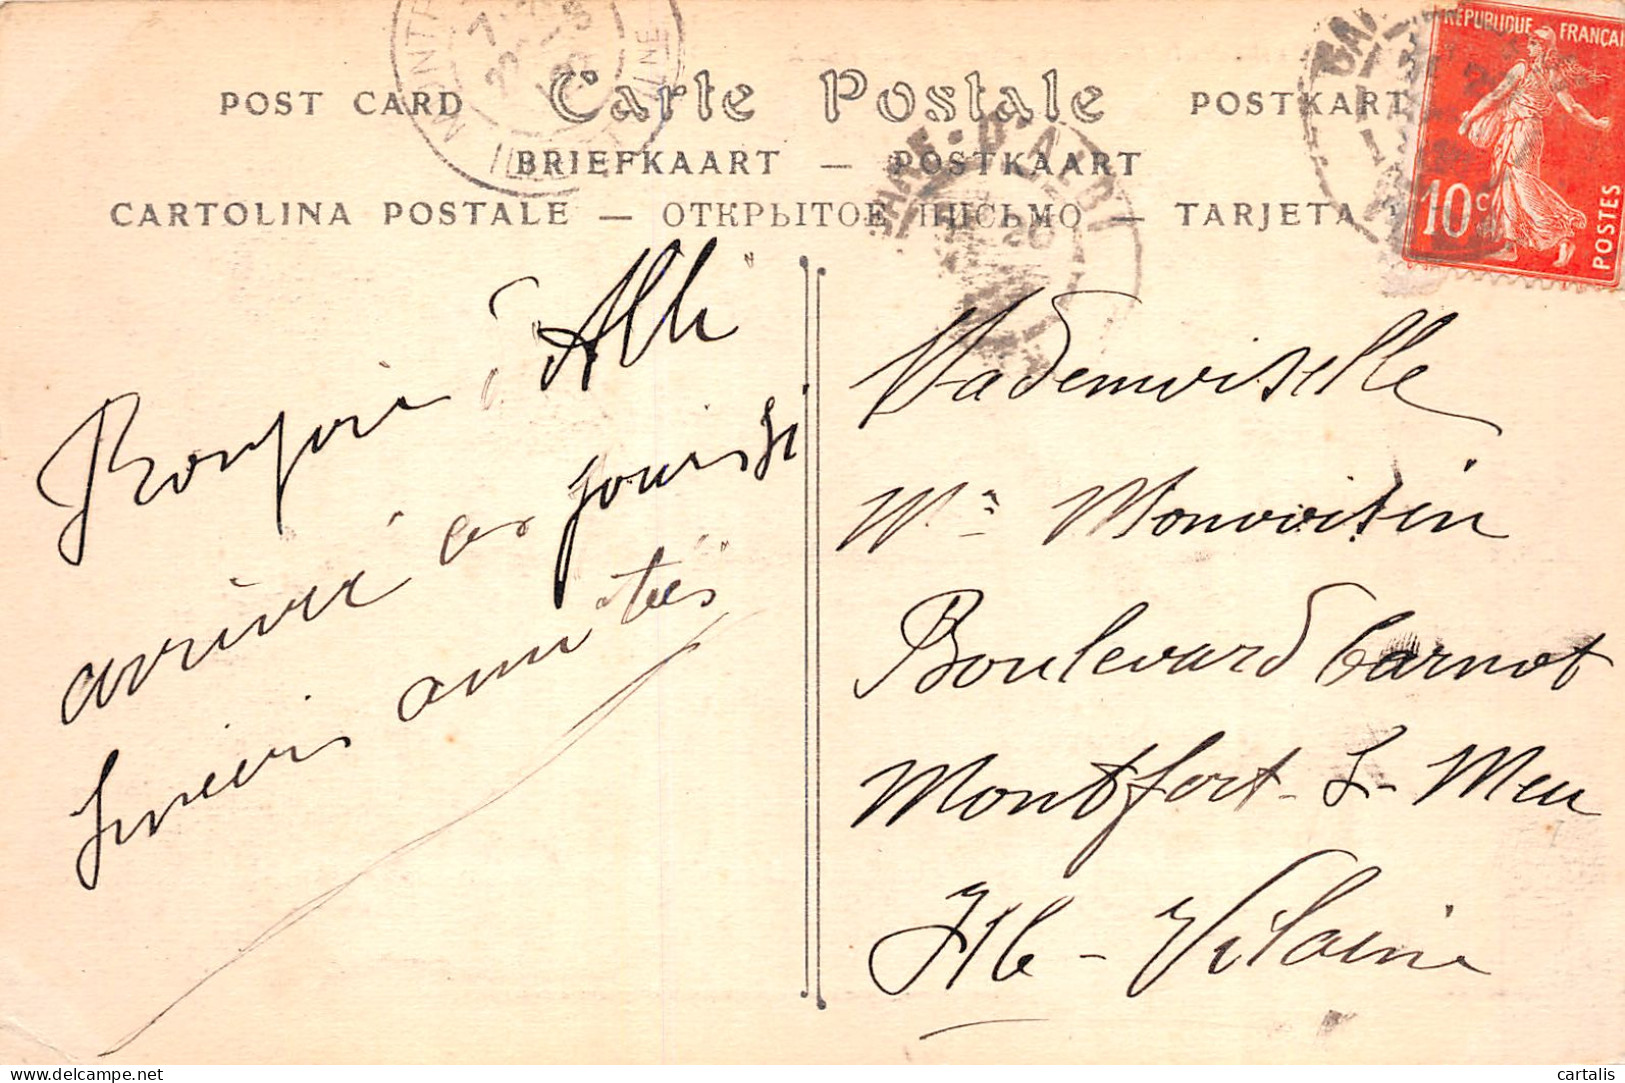 POST CARD Carte Postale POSTKART
BRIEFKAART — POSTKAART
CARTOLINA POSTALE — ОТКРЫТОЕ ПИСЬМО — TARJETA
RÉPUBLIQUE FRANÇAI
10c
POSTES
Bonjour
arrivé ces jours ci
amitiés
Mademoiselle
Monvoisin
Boulevard Carnot
Montfort-S-Meu
Ille-Vilaine
cartalis